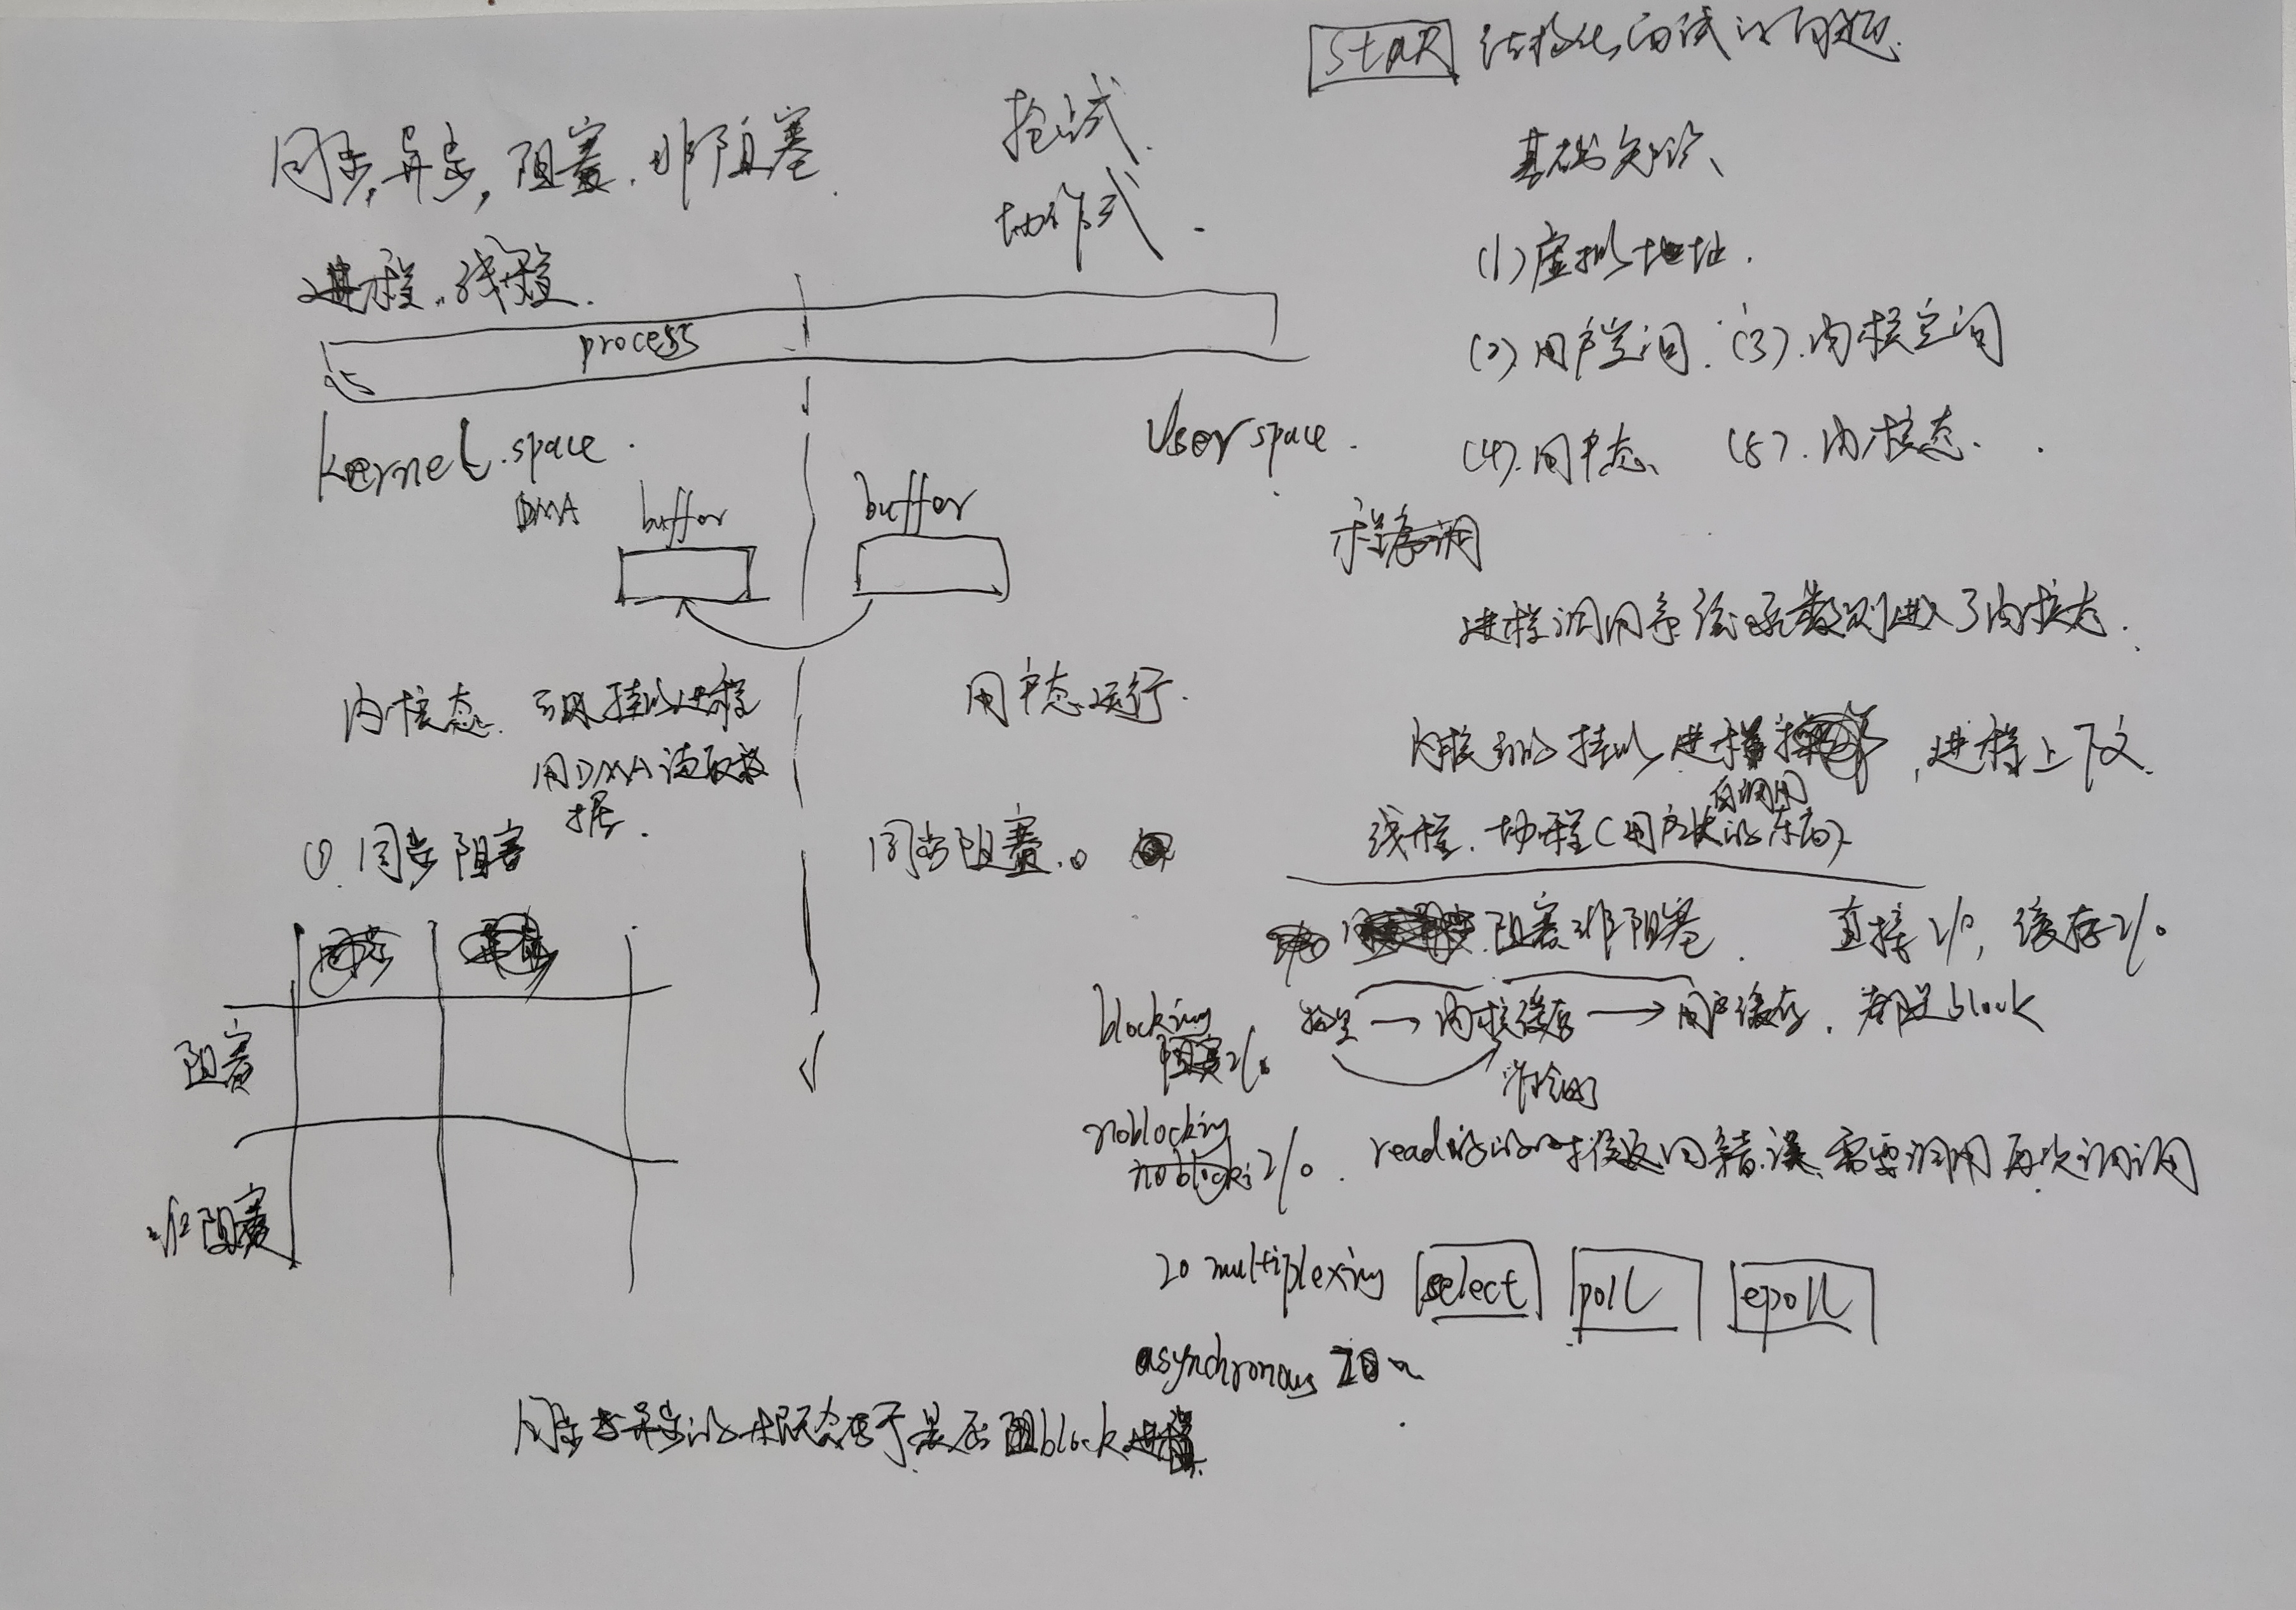 STAR 结构化面试的问题.
同步, 异步, 阻塞. 非阻塞.
抢占式.
协作式.
进程. 线程.
process
os
kernel space.
DMA
buffer
buffer
User space.
内核态. 可以挂起进程
用DMA读取数
据.
用户态运行.
① 同步阻塞
同步阻塞.
阻塞
非阻塞
基础知识、
(1) 虚拟地址.
(2) 用户空间. (3). 内核空间
(4). 用户态、 (5). 内核态.
程序调
进程调用系统函数则进入了内核态.
内核可以挂起进程, 进程上下文.
线程. 协程(用户态的东西)
阻塞非阻塞. 直接I/O, 缓存I/O
blocking
阻塞I/O
内核缓存 → 用户缓存. 都是block
noblocking
noblocki I/O. read的时候返回错误, 需要调用再次调用
IO multiplexing select poll epoll
asynchronous IO
同步与异步的概念在于是否阻block进程.